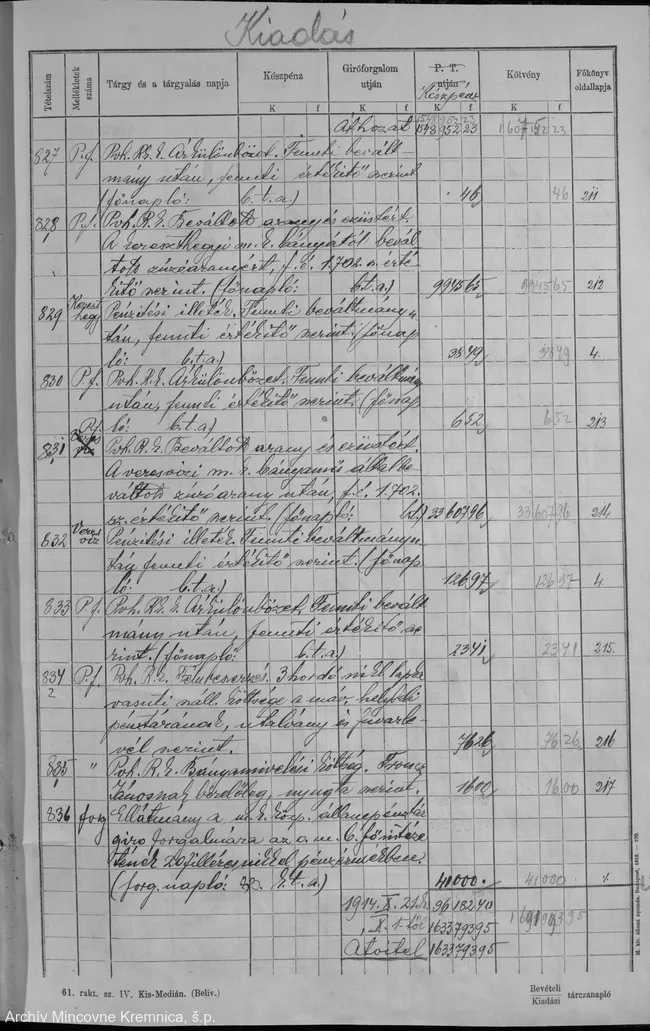 Kiadás
Tételszám
Mellékletek száma
Tárgy és a tárgyalás napja
Készpénz
Giróforgalom utján
P. T. utján
Készpénz
Kötvény
Főkönyv oldallapja
K f K f K f K f
Áthozat 1548952 23 160715223
827 P.f. Pvh. R.E. Árkülönbözet. Fennti bevált-
mány után, fennti értékítő szerint
(főnapló: b.t.a.) 46 46 211
828 P.f. Pvh. R.E. Beváltott arany és ezüstért.
A kereszthegyi m. k. bányától bevál-
tott zúzóaranyért, f. é. 1.702. sz. érté-
kítő szerint. (főnapló: b.t.a.) 9945 65 9945 65 212
829 Kereszthegy Pénzítési illeték. Fennti beváltmány u-
tán, fennti értékítő szerint. (főnap-
ló: b.t.a.) 35 49 35 49 4.
830 P.f. Pvh. R.E. Árkülönbözet. Fennti beváltmány
után, fennti értékítő szerint. (főnap-
ló: b.t.a.) 6 52 6 52 213
831 P.f. Pvh. R.E. Beváltott arany és ezüstért.
A veresvizi m. k. bányamű által be-
váltott zúzóarany után, f. é. 1.702.
sz. értékítő szerint. (főnapló: 33607 96 33607 96 214
832 Veresviz Pénzítési illeték. Fennti beváltmány u-
tán, fennti értékítő szerint. (főnap-
ló: b.t.a.) 126 97 126 97 4.
833 P.f. Pvh. R.E. Árkülönbözet. Fennti bevált-
mány után, fennti értékítő sze-
rint. (főnapló: b.t.a.) 23 41 23 41 215.
834 P.f. Pvh. R.E. Fémbeszerzés. 3 hordó
vasuti száll. költsége a máv. helybeli
pénztárának, utalvány és fuvarle-
vél szerint. 76 26 76 26 216
835 " Pvh. R.E. Bányamivelési költség.
Jánosnak bérelőleg, nyugta szerint. 16 00 16 00 217
836 forg Ellátmány a m. k. közp. állampénztár
giro forgalmára az o. m. b. főintéze-
tének 20 filléres nikkel pénzérmékben.
(forg. napló: b.t.a.) 41000. 41000.
1914. X. 21. 96182 40
X. 1-től 1633793 95
Átvitel 1633793 95
61. rakt. sz. IV. Kis-Medián. (Beliv.)
Bevételi
Kiadási tárczanapló
M. kir. állami nyomda. Budapest,
Archív Mincovne Kremnica, š.p.